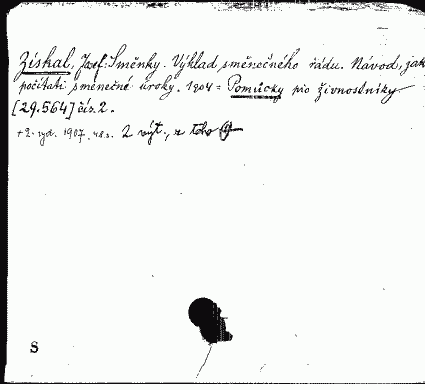 Získal, Josef: Směnky. Výklad směnečného řádu. Návod, jak
počítati směnečné úroky. 1904 = Pomůcky pro živnostníky
[29.564] čís. 2.
+ 2. vyd. 1907. 48 s. 2 výt., z toho
S